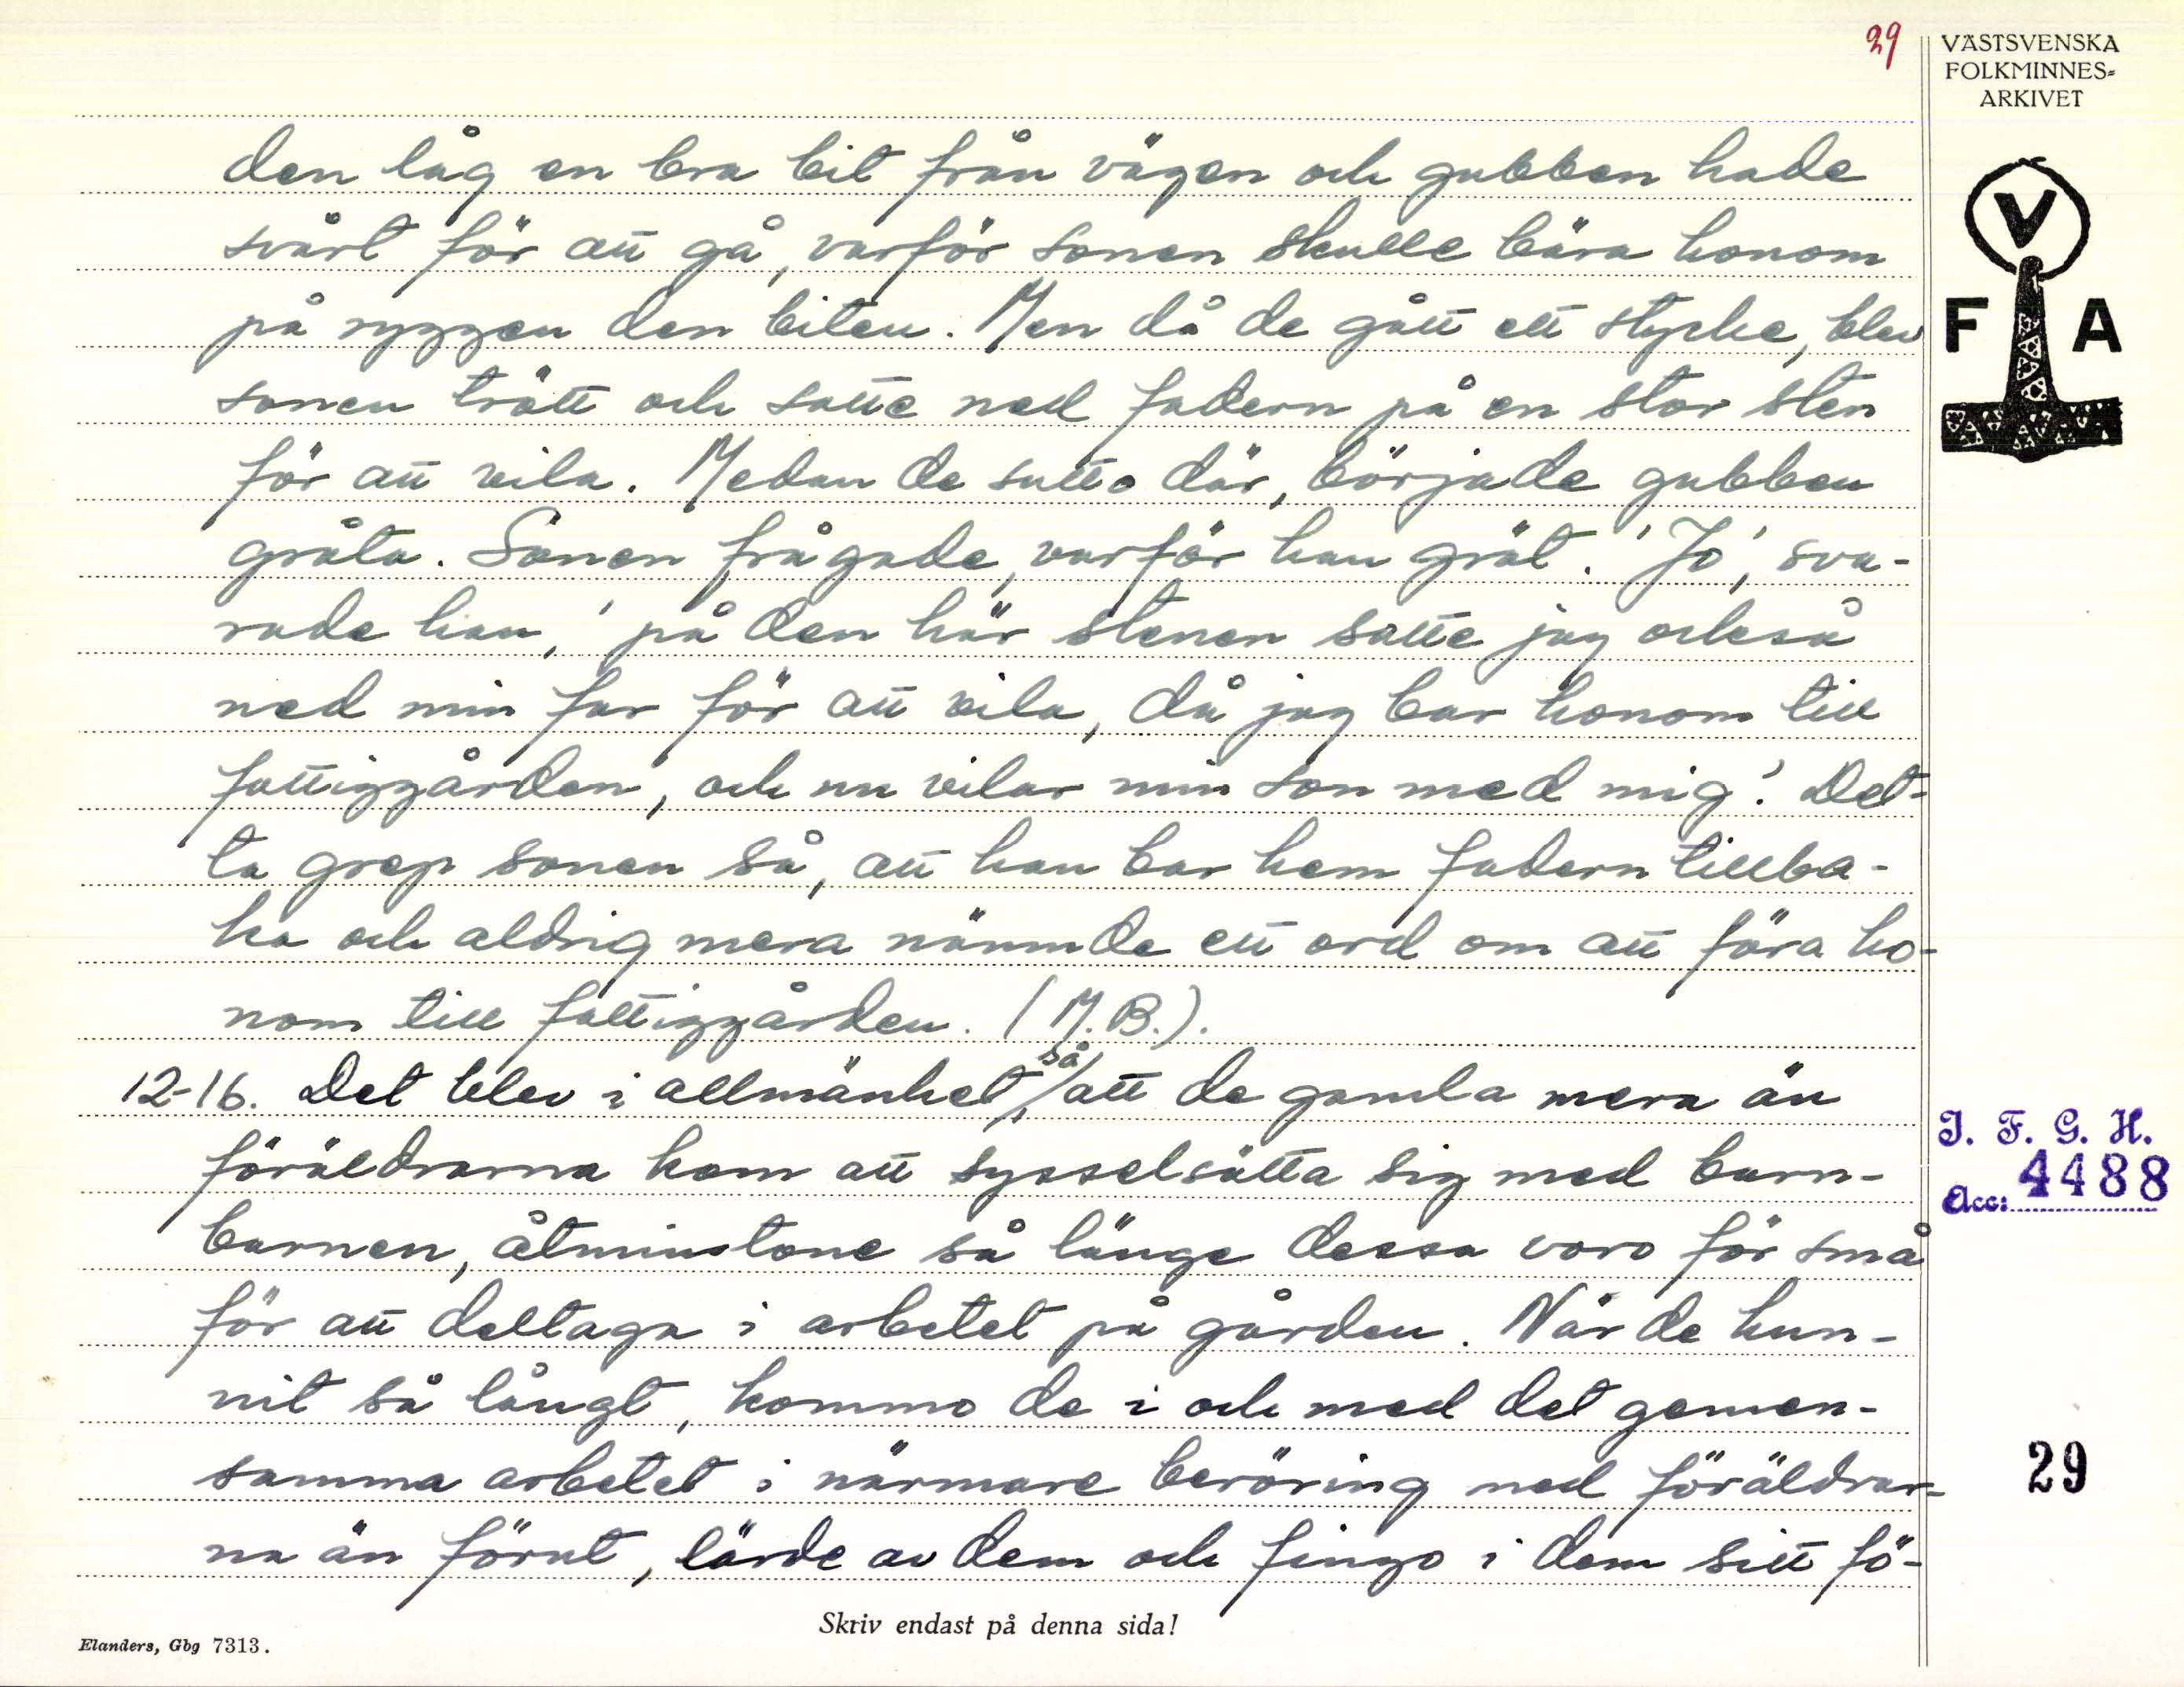 29
VÄSTSVENSKA
FOLKMINNES=
ARKIVET
V
F A
den låg en bra bit från vägen och gubben hade
svårt för att gå, varför sonen skulle bära honom
på ryggen den biten. Men då de gått ett stycke, blev
sonen trött och satte ned fadern på en stor sten
för att vila. Medan de sutto där, började gubben
gråta. Sonen frågade, varför han grät. 'Jo', sva-
rade han, 'på den här stenen satte jag också
ned min far för att vila, då jag bar honom till
fattiggården, och nu vilar min son med mig.' Det-
ta grep sonen så, att han bar hem fadern tillba-
ka och aldrig mera nämnde ett ord om att föra ho-
nom till fattiggården. (M.B.).
12-16. Det blev i allmänhet så, att de gamla mera än
föräldrarna kom att sysselsätta sig med barn-
barnen, åtminstone så länge dessa voro för små
för att deltaga i arbetet på gården. När de hun-
nit så långt, kommo de i och med det gemen-
samma arbetet i närmare beröring med föräldrar-
na än förut, lärde av dem och fingo i dem sitt fö-
I. F. G. H.
Acc: 4488
29
Skriv endast på denna sida!
Elanders, Gbg 7313.